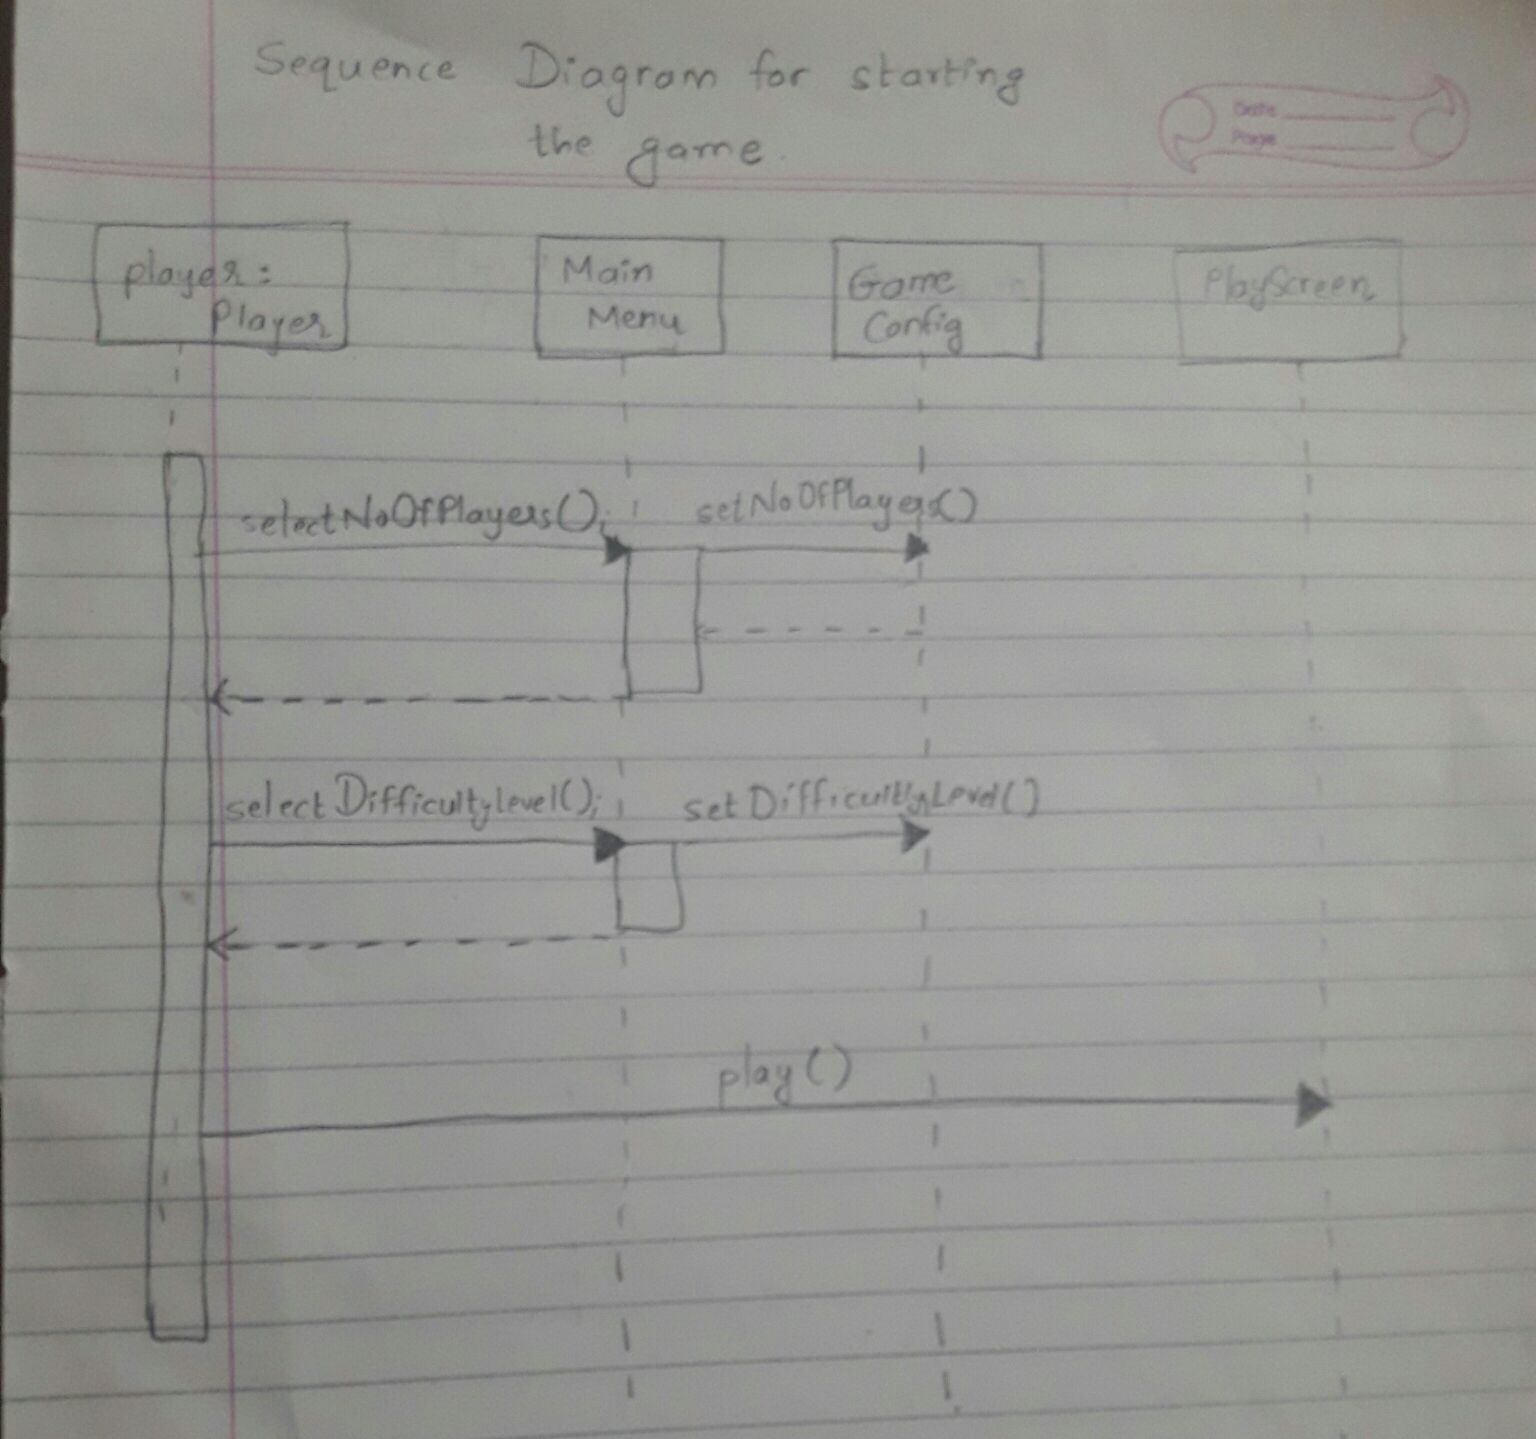 Sequence Diagram for starting
the game.
Date
Page
player:
Player
Main
Menu
Game
Config
PlayScreen
selectNoOfPlayers();
setNoOfPlayers()
selectDifficultylevel();
setDifficultlyLevel()
play()